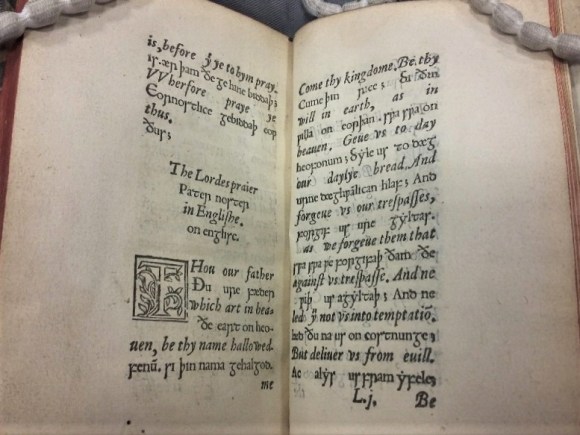 is, before ẏ ye to hym pray.
is. ær þam ðe ge hine biddaþ;
VVherfore praye ye
Eornostlice gebiddaþ eow
thus.
ðus;
The Lordes praier
Pater noster
in Englishe.
on englisc.
THou our father
Ðu ure fæder
which art in hea-
ðe eart on heo-
uen, be thy name hallowed.
fenū. si þin nama gehalgod.
me
Come thy kingdome. Be thy
Cume þin rice; Si ðin
will in earth, as in
willa on eorþan. swa swa on
heauen. Geue vs to day
heofonum; Syle us to dæg
our daylye bread. And
urne dæghwamlican hlaf; And
forgeue vs our trespasses,
forgif us ure gyltas.
as we forgeue them that
swa swa we forgifaþ ðam ðe
against vs trespasse. And ne
wiþ us agyltaþ; And ne
led ẏ not vs into temptatiō.
læd ðu na us on costnunge;
But deliuer vs from euill.
Ac alys us fram yfele;
L.j. Be